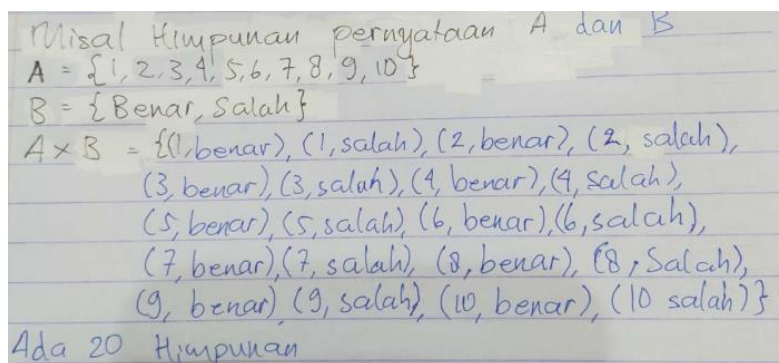 Misal Himpunan pernyataan A dan B
A = {1, 2, 3, 4, 5, 6, 7, 8, 9, 10}
B = {Benar, Salah}
A × B = {(1, benar), (1, salah), (2, benar), (2, salah),
(3, benar), (3, salah), (4, benar), (4, salah),
(5, benar), (5, salah), (6, benar), (6, salah),
(7, benar), (7, salah), (8, benar), (8, Salah),
(9, benar) (9, salah), (10, benar), (10 salah)}
Ada 20 Himpunan